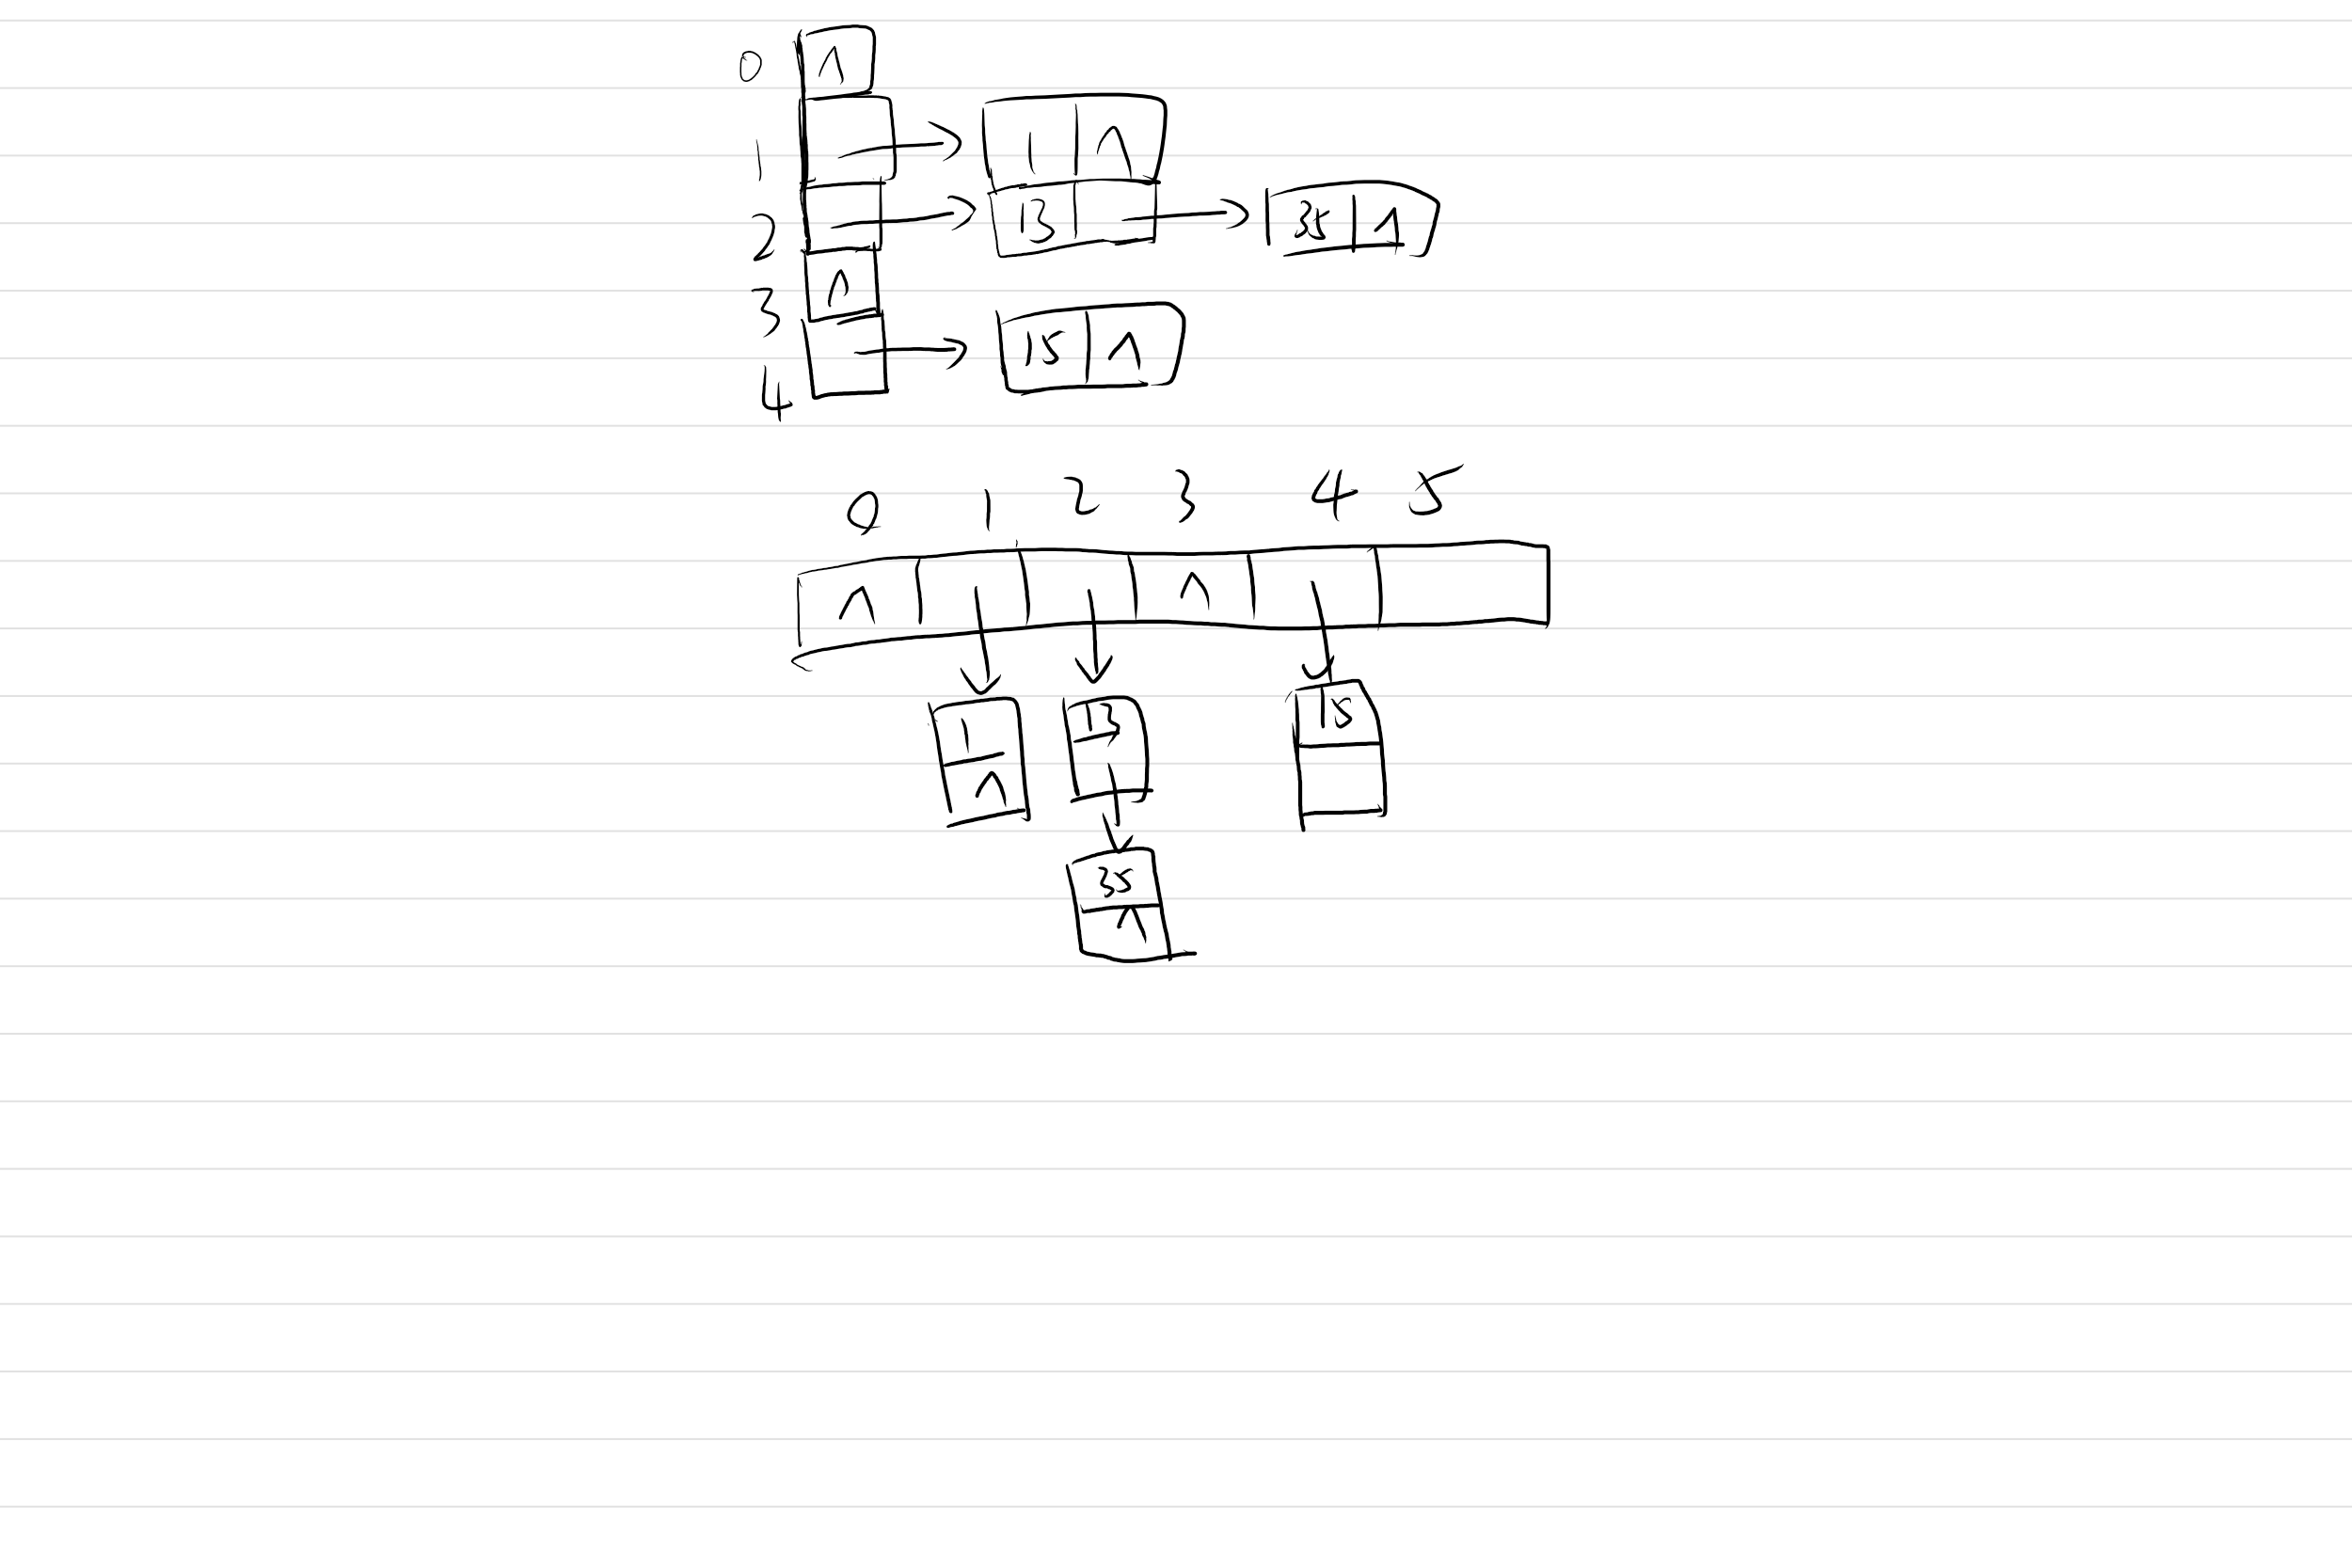 0 ^
1 1 ^
2 13 35 ^
3 ^
4 15 ^
0 1 2 3 4 5
^ ^
1 13 15
^
35
^